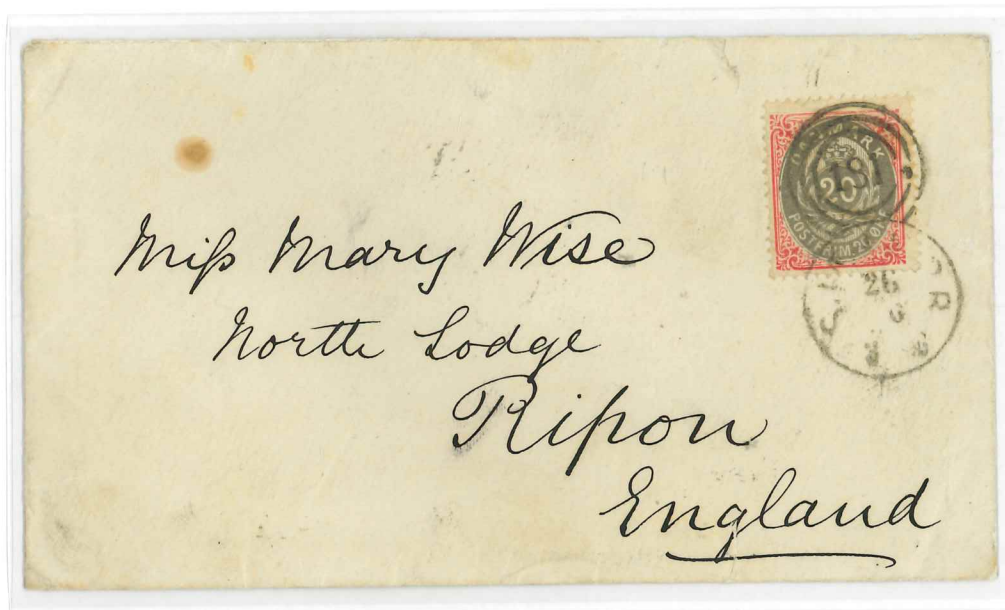 DANMARK
181
20
POSTFRIM. 20 ØRE
Miſs Mary Wise
North Lodge
Ripon
England
26
6